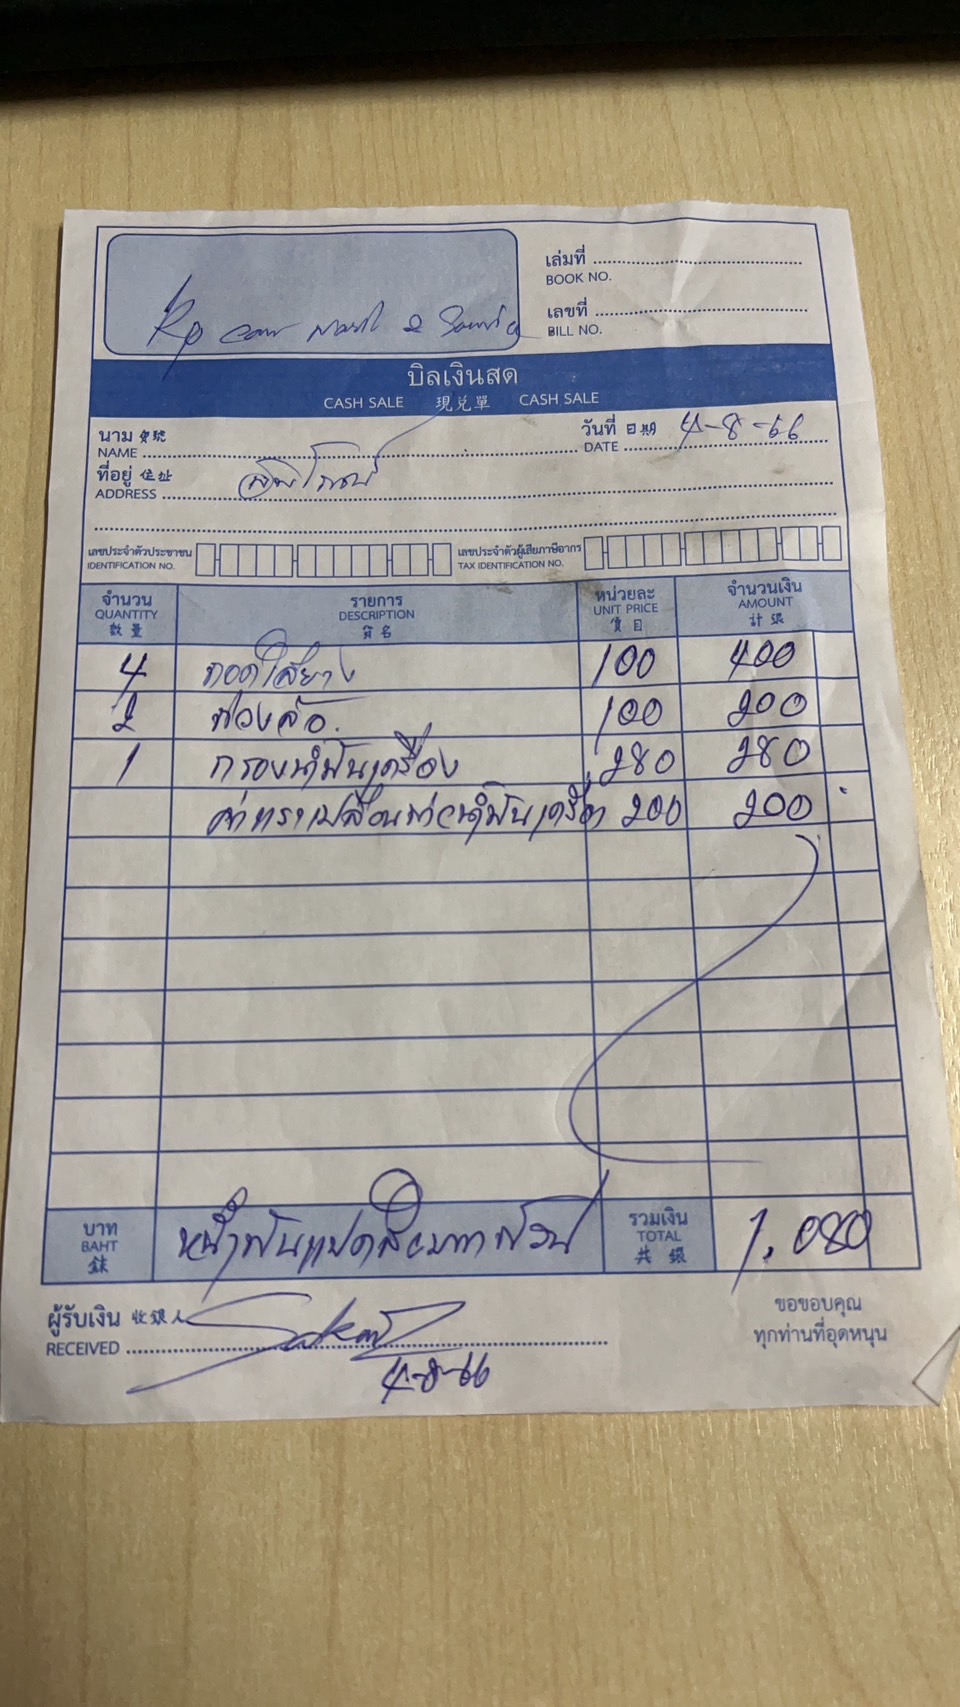 เล่มที่
BOOK NO.
Rp car & Service
เลขที่
BILL NO.
บิลเงินสด
CASH SALE 現兑單 CASH SALE
นาม 寶號
NAME
วันที่ 日期 4-8-66
DATE
ที่อยู่ 住址
ADDRESS
เลขประจำตัวประชาชน
IDENTIFICATION NO.
เลขประจำตัวผู้เสียภาษีอากร
TAX IDENTIFICATION NO.
จำนวน รายการ หน่วยละ จำนวนเงิน
QUANTITY DESCRIPTION UNIT PRICE AMOUNT
數量 貨名 價目 計銀
4 ถอดใส่ยาง 100 400
2 ถ่วงล้อ. 100 200
1 กรองน้ำมันเครื่อง 280 280
ค่าแรงเปลี่ยนถ่ายน้ำมันเครื่อง 200 200
บาท
BAHT
銖
หนึ่งพันแปดสิบบาทถ้วน
รวมเงิน
TOTAL
共銀
1,080
ผู้รับเงิน 收銀人
RECEIVED
4-8-66
ขอขอบคุณ
ทุกท่านที่อุดหนุน